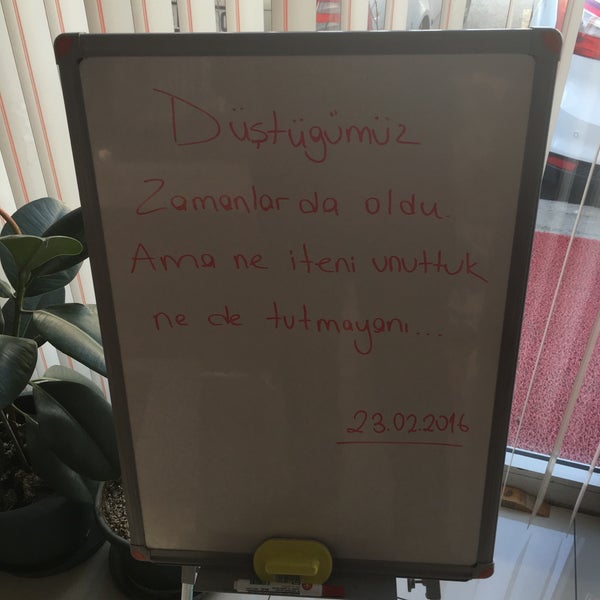 Düştüğümüz
Zamanlar da oldu.
Ama ne iteni unuttuk
ne de tutmayanı...
23.02.2016